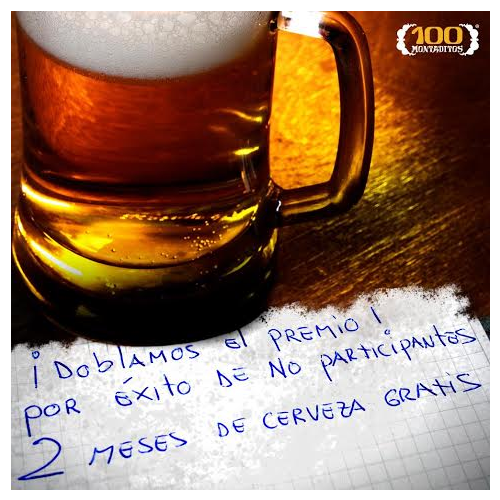 100
MONTADITOS
¡DOBLAMOS El PREMIO!
POR ÉXITO DE NO PARTICIPANTES
2 MESES DE CERVEZA GRATIS